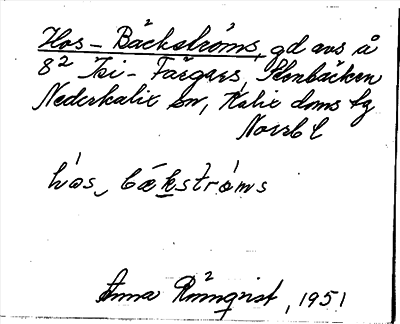 Hos-Bäckströms, gd avs å
8² Isi-Färgars, Stenbäcken
Nederkalix sn, Kalix doms tg
Norrb l
hós, bækstrøms
Anna Rönnqvist, 1951